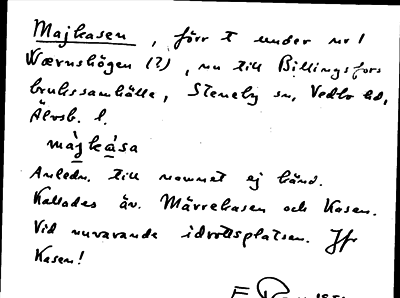 Majkasen, förr t under nr 1
Wærnshögen (?), nu till Billingsfors
brukssamhälle, Steneby sn, Vedbo hd,
Älvsb. l.
màjkása
Anledn. till namnet ej känd.
Kallades äv. Märrekasen och Kasen.
Vid nuvarande idrottsplatsen. Jfr
Kasen!